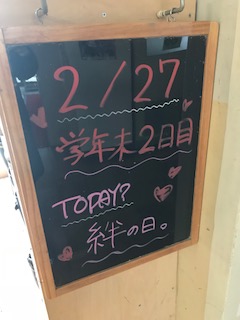 2/27
学年末2日目
TODAY?
絆の日。